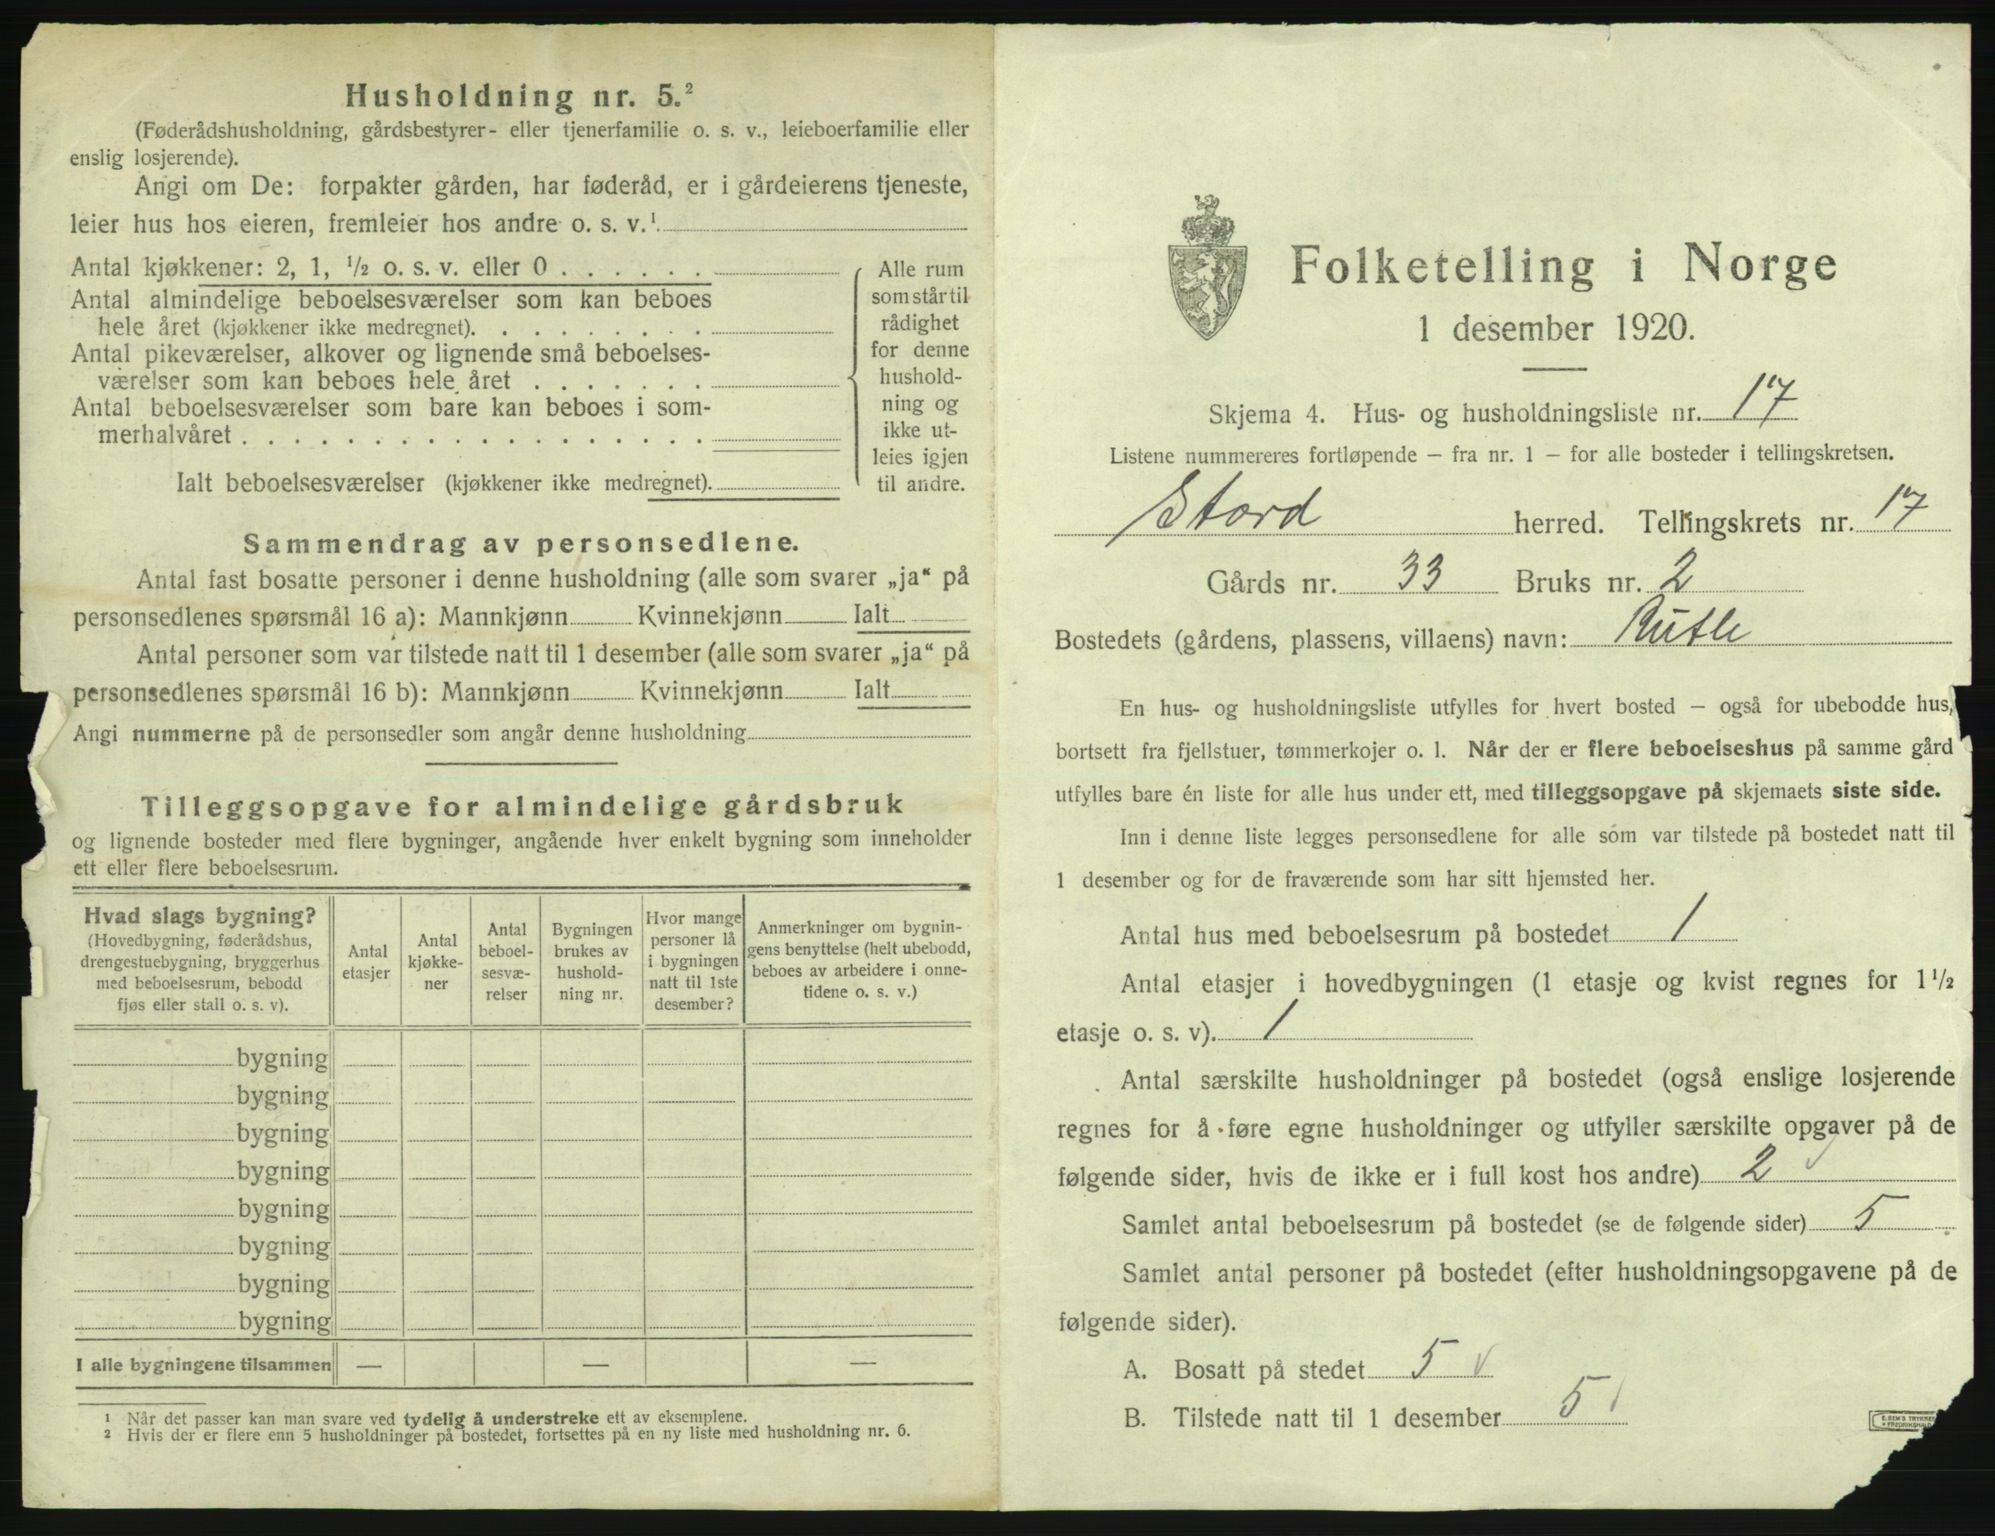 Husholdning nr. 5.²
(Føderådshusholdning, gårdsbestyrer- eller tjenerfamilie o. s. v., leieboerfamilie eller
enslig losjerende).
Angi om De: forpakter gården, har føderåd, er i gårdeierens tjeneste,
leier hus hos eieren, fremleier hos andre o. s. v.¹
Antal kjøkkener: 2, 1, ½ o. s. v. eller 0 . . . . . .
Antal almindelige beboelsesværelser som kan beboes
hele året (kjøkkener ikke medregnet). . . . . . . . .
Antal pikeværelser, alkover og lignende små beboelses-
værelser som kan beboes hele året . . . . . . .
Antal beboelsesværelser som bare kan beboes i som-
merhalvåret . . . . . . . . . . . . . . . . . .
Ialt beboelsesværelser (kjøkkener ikke medregnet).
Alle rum
som står til
rådighet
for denne
hushold-
ning og
ikke ut-
leies igjen
til andre.
Sammendrag av personsedlene.
Antal fast bosatte personer i denne husholdning (alle som svarer „ja“ på
personsedlenes spørsmål 16 a): Mannkjønn Kvinnekjønn Ialt
Antal personer som var tilstede natt til 1 desember (alle som svarer „ja“ på
personsedlenes spørsmål 16 b): Mannkjønn Kvinnekjønn Ialt
Angi nummerne på de personsedler som angår denne husholdning
Tilleggsopgave for almindelige gårdsbruk
og lignende bosteder med flere bygninger, angående hver enkelt bygning som inneholder
ett eller flere beboelsesrum.
Hvad slags bygning?
(Hovedbygning, føderådshus,
drengestuebygning, bryggerhus
med beboelsesrum, bebodd
fjøs eller stall o. s. v).
Antal
etasjer
Antal
kjøkke-
ner
Antal
beboel-
sesvæ-
relser
Bygningen
brukes av
hushold-
ning nr.
Hvor mange
personer lå
i bygningen
natt til 1ste
desember?
Anmerkninger om bygnin-
gens benyttelse (helt ubebodd,
beboes av arbeidere i onne-
tidene o. s. v.)
bygning
bygning
bygning
bygning
bygning
bygning
bygning
bygning
I alle bygningene tilsammen — — —
¹ Når det passer kan man svare ved tydelig å understreke ett av eksemplene.
² Hvis der er flere enn 5 husholdninger på bostedet, fortsettes på en ny liste med husholdning nr. 6.
Folketelling i Norge
1 desember 1920.
Skjema 4. Hus- og husholdningsliste nr. 17
Listene nummereres fortløpende — fra nr. 1 — for alle bosteder i tellingskretsen.
Stord herred. Tellingskrets nr. 17
Gårds nr. 33 Bruks nr. 2
Bostedets (gårdens, plassens, villaens) navn: Rutle
En hus- og husholdningsliste utfylles for hvert bosted — også for ubebodde hus,
bortsett fra fjellstuer, tømmerkojer o. l. Når der er flere beboelseshus på samme gård
utfylles bare én liste for alle hus under ett, med tilleggsopgave på skjemaets siste side.
Inn i denne liste legges personsedlene for alle som var tilstede på bostedet natt til
1 desember og for de fraværende som har sitt hjemsted her.
Antal hus med beboelsesrum på bostedet 1
Antal etasjer i hovedbygningen (1 etasje og kvist regnes for 1½
etasje o. s. v). 1
Antal særskilte husholdninger på bostedet (også enslige losjerende
regnes for å føre egne husholdninger og utfyller særskilte opgaver på de
følgende sider, hvis de ikke er i full kost hos andre) 2
Samlet antal beboelsesrum på bostedet (se de følgende sider) 5
Samlet antal personer på bostedet (efter husholdningsopgavene på de
følgende sider).
A. Bosatt på stedet 5
B. Tilstede natt til 1 desember 5